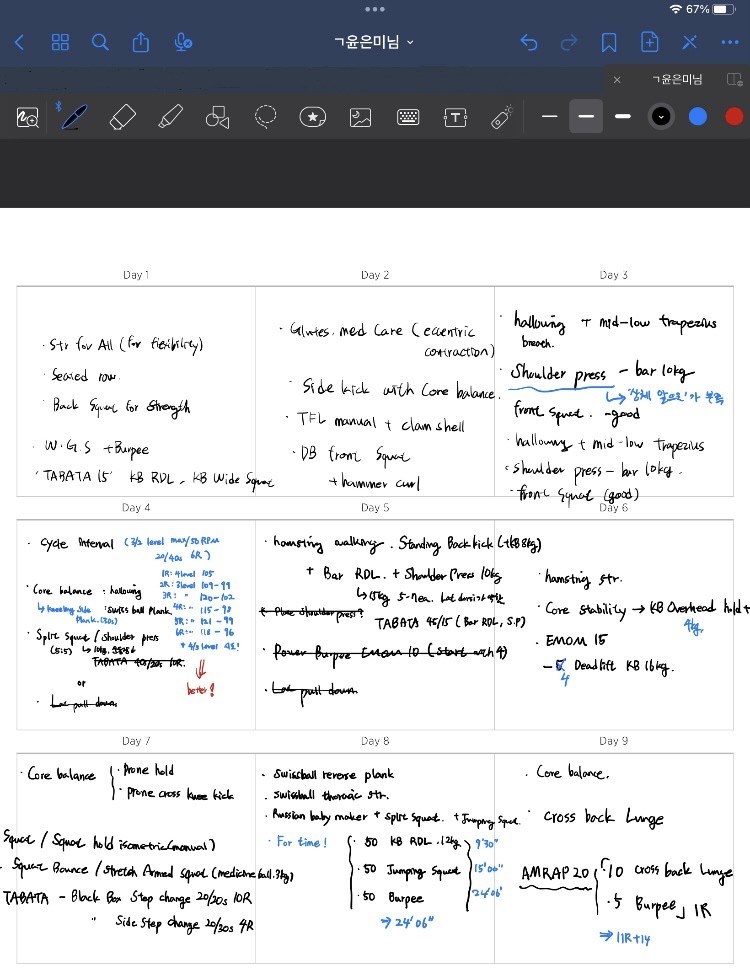 67%
ㄱ윤은미님
ㄱ윤은미님
T
Day 1
Day 2
Day 3
· Str for All (for flexibility)
· Seated row.
· Back Squat for Strength
· W.G.S + Burpee
· TABATA 15' KB RDL, KB Wide Squat
· Glutes. med Care (eccentric
contraction)
· Side kick with Core balance.
· TFL manual + clam shell
· DB front Squat
+ hammer curl
· hallowing + mid-low trapezius
breath.
· Shoulder press - bar 10kg
↳ '상체 앞으로'가 부족
front squat. -good
· hallowing + mid-low trapezius
· shoulder press - bar 10kg.
· front squat (good)
Day 4
Day 5
Day 6
· Cycle Interval (3/2 level max/50RPM
20/40s 6R)
1R: 4level 105
2R: 3level 109-99
3R: " 120-102
4R: " 115-98
5R: " 121-99
6R: " 118-96
+ 4/3 level 시도!
better!
· Core balance : hallowing
↳ kneeling side plank. (30s)
: Swiss ball Plank.
· Split Squat / shoulder press
(5:5)
TABATA 40/20s 10R.
or
· Lat pull down
· hamstring walking. Standing Back kick (+KB 8kg)
+ Bar RDL. + Shoulder Press 10kg
↳ 15kg 5-7ea.
TABATA 45/15 (Bar RDL, S.P)
· Power Burpee Emom 10 (start with 4)
· Lat pull down
· hamstring str.
· Core stability → KB Overhead hold +
4kg.
· EMOM 15
- 5 Deadlift KB 16kg.
4
Day 7
Day 8
Day 9
· Core balance
· Prone hold
· prone cross knee kick
Squat / Squat hold isometric (manual)
· Squat Bounce / Stretch Armed squat (medicine ball. 3kg)
TABATA - Black Box Step change 20/20s 10R
" Side Step change 20/30s 4R
· Swissball reverse plank
· swissball thoracic str.
· Russian baby maker + Split Squat. + Jumping Squat.
· For time!
· 50 KB RDL .12kg 9'30"
· 50 Jumping Squat 15'00"
· 50 Burpee 24'06"
⇒ 24'06"
· Core balance.
· cross back Lunge
AMRAP 20
· 10 cross back lunge
· 5 Burpee 1R
⇒ 11R+14